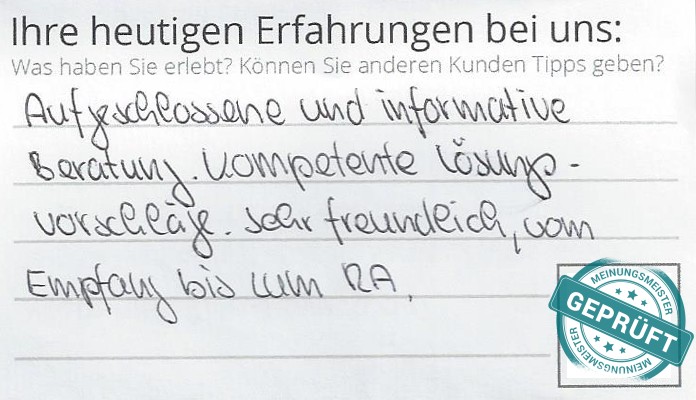 Ihre heutigen Erfahrungen bei uns:
Was haben Sie erlebt? Können Sie anderen Kunden Tipps geben?
Aufgeschlossene und informative
Beratung. Kompetente Lösungs-
vorschläge. Sehr freundlich, vom
Empfang bis zum RA.
MEINUNGSMEISTER
GEPRÜFT
MEINUNGSMEISTER